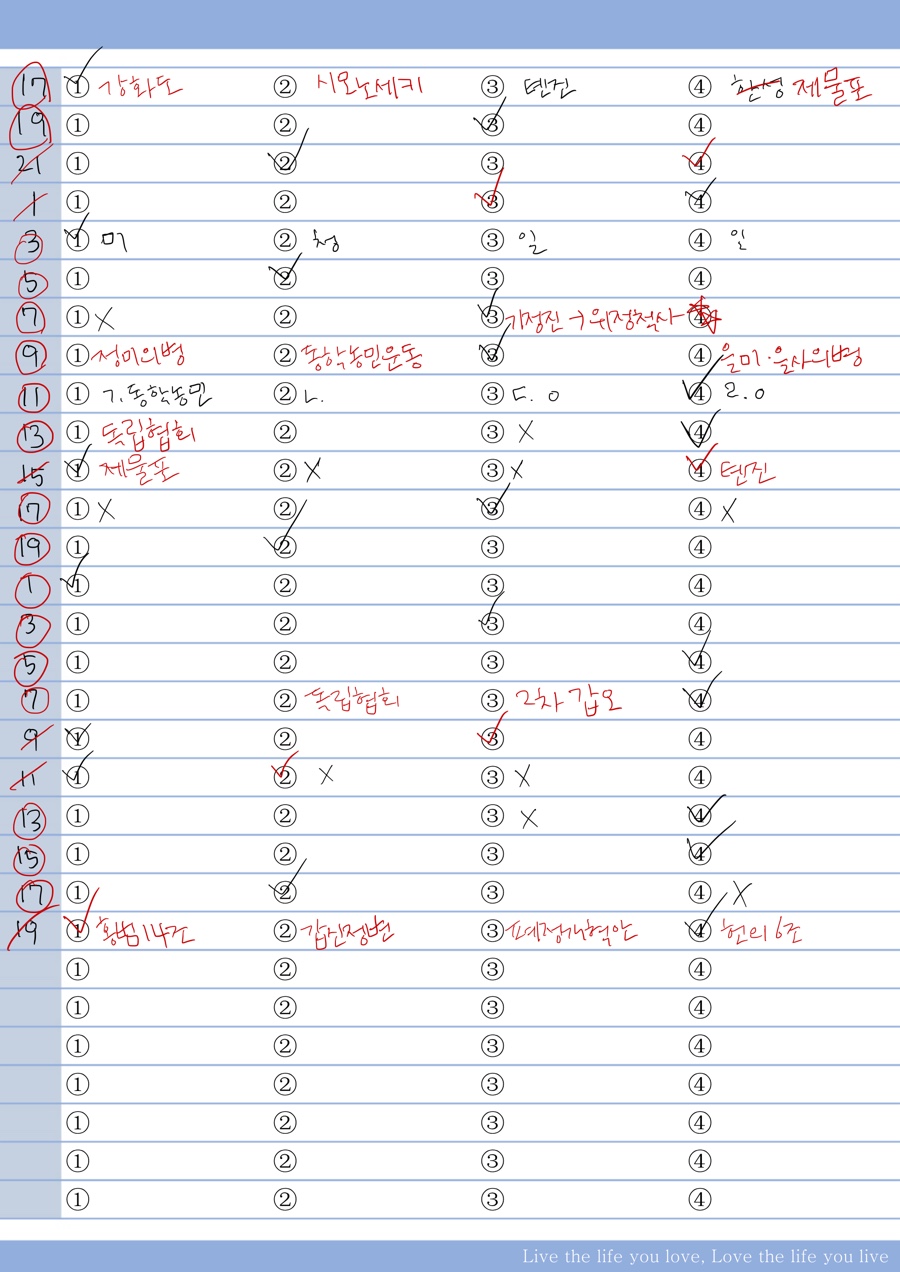 17 ① 강화도 ② 시모노세키 ③ 텐진 ④ 한성 제물포
19 ① ② ③ ④
21 ① ② ③ ④
1 ① ② ③ ④
3 ① 미 ② 청 ③ 일 ④ 일
5 ① ② ③ ④
7 ① X ② ③ 기정진 → 위정척사 ④
9 ① 정미의병 ② 동학농민운동 ③ ④ 을미·을사의병
11 ① ㄱ.동학농민 ② ㄴ. ③ ㄷ. o ④ ㄹ.o
13 ① 독립협회 ② ③ X ④
15 ① 제물포 ② X ③ X ④ 텐진
17 ① X ② ③ ④ X
19 ① ② ③ ④
1 ① ② ③ ④
3 ① ② ③ ④
5 ① ② ③ ④
7 ① ② 독립협회 ③ 2차 갑오 ④
9 ① ② ③ ④
11 ① ② X ③ X ④
13 ① ② ③ X ④
15 ① ② ③ ④
17 ① ② ③ ④ X
19 ① 홍범14조 ② 갑신정변 ③ 폐정개혁안 ④ 헌의 6조
① ② ③ ④
① ② ③ ④
① ② ③ ④
① ② ③ ④
① ② ③ ④
① ② ③ ④
① ② ③ ④
Live the life you love, Love the life you live